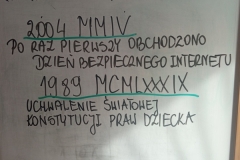 2004 MMIV
PO RAZ PIERWSZY OBCHODZONO
DZIEŃ BEZPIECZNEGO INTERNETU
1989 MCMLXXXIX
UCHWALENIE ŚWIATOWEJ
KONSTYTUCJI PRAW DZIECKA